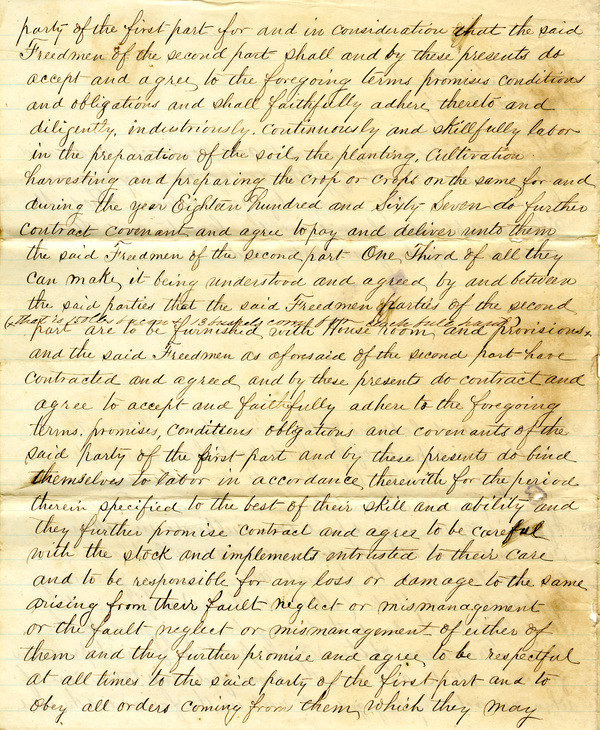 party of the first part for and in consideration that the said
Freedmen of the second part shall and by these presents do
accept and agree to the foregoing terms promises conditions
and obligations and shall faithfully adhere thereto and
diligently, industriously, continuously and skillfully labor
in the preparation of the soil, the planting, cultivation
harvesting and preparing the crop or crops on the same for and
during the year Eighteen Hundred and Sixty Seven do further
contract covenant and agree to pay and deliver unto them
the said Freedmen of the second part One Third of all they
can make, it being understood and agreed by and between
the said parties that the said Freedmen parties of the second
(that is 150 lbs bacon & 13 bushels corn for each full hand)
part are to be furnished with House room and provisions x
and the said Freedmen as aforesaid of the second part have
contracted and agreed and by these presents do contract and
agree to accept and faithfully adhere to the foregoing
terms, promises, conditions obligations and covenants of the
said party of the first part and by these presents do bind
themselves to labor in accordance therewith for the period
therein specified to the best of their skill and ability and
they further promise contract and agree to be careful
with the stock and implements intrusted to their care
and to be responsible for any loss or damage to the same
arising from their fault neglect or mismanagement
or the fault neglect or mismanagement of either of
them and they further promise and agree to be respectful
at all times to the said party of the first part and to
obey all orders coming from them, which they may